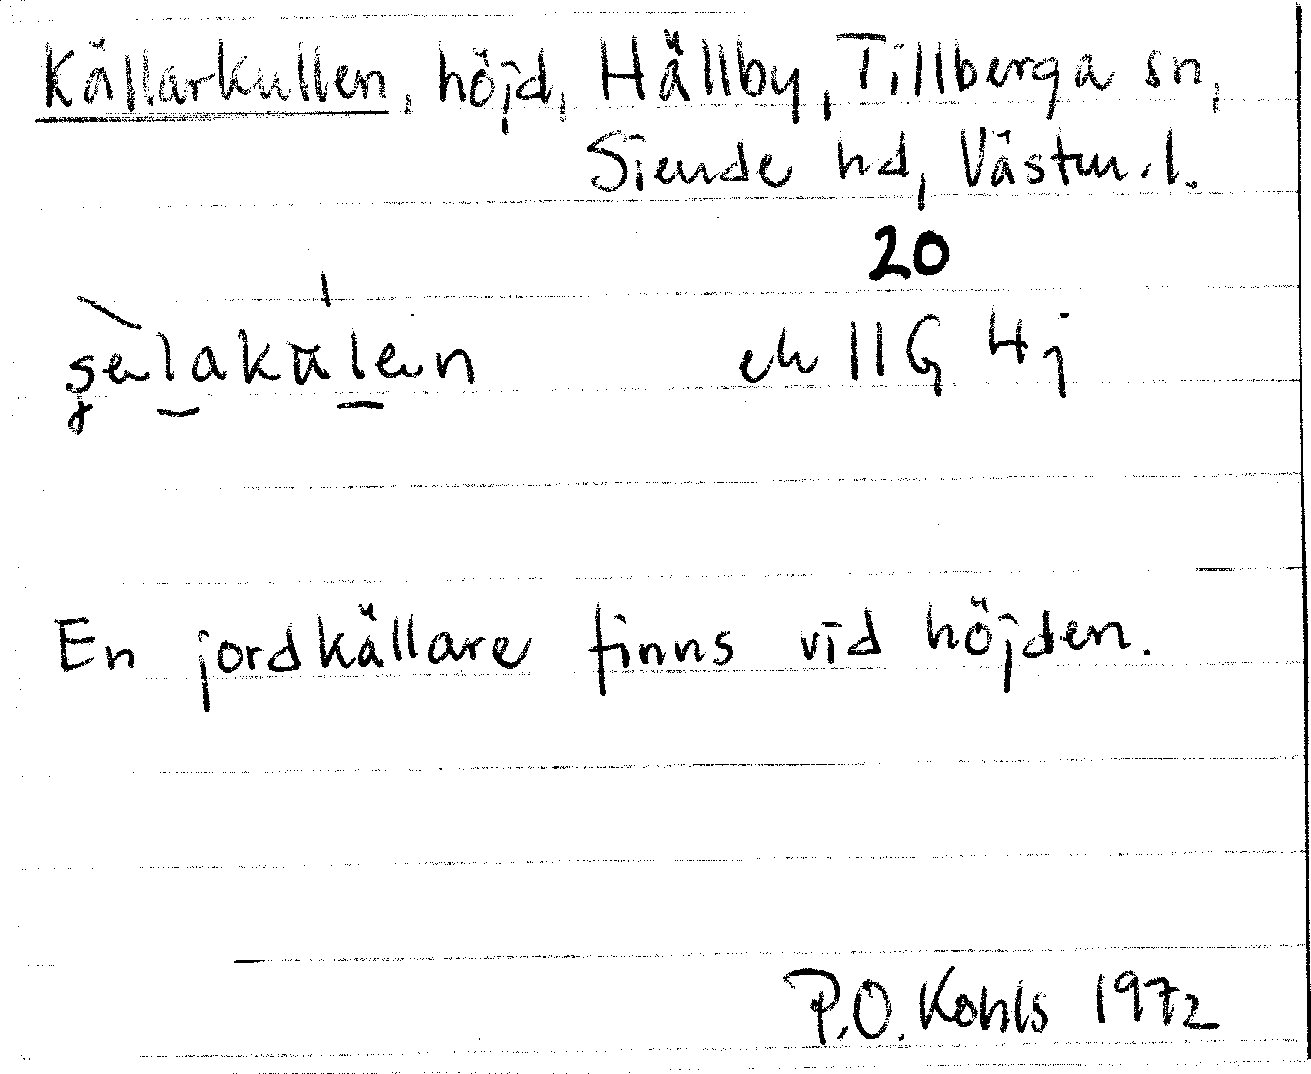 Källarkullen, höjd, Hällby, Tillberga sn,
Siende hd, Västm.l.
20
ek 11G 4j
En jordkällare finns vid höjden.
P.O. Kohls 1972